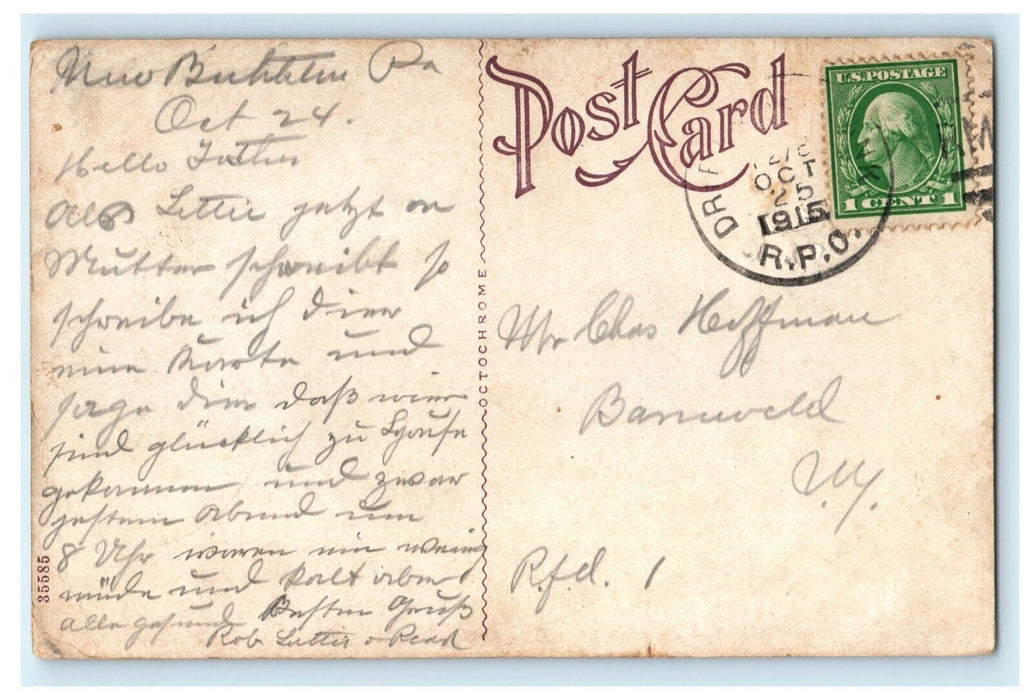 New Bethlehem Pa
Oct 24.
Hello Father
Als Lettie jetzt an
Mutter schreibt so
schreibe ich dier
eine Karte und
sage dier daß wier
sind glücklich zu Hause
gekommen und zwar
gestern Abend um
8 Uhr waren ein wenig
müde und kalt aber
alle gesund Besten Gruß
Rob Lettie &
35585
OCTOCHROME
Post Card
U.S. POSTAGE
1 CENT 1
OCT
25
1915
R.P.O.
Mr Chas Hoffman
Barneveld
N.Y.
R.f.d. 1